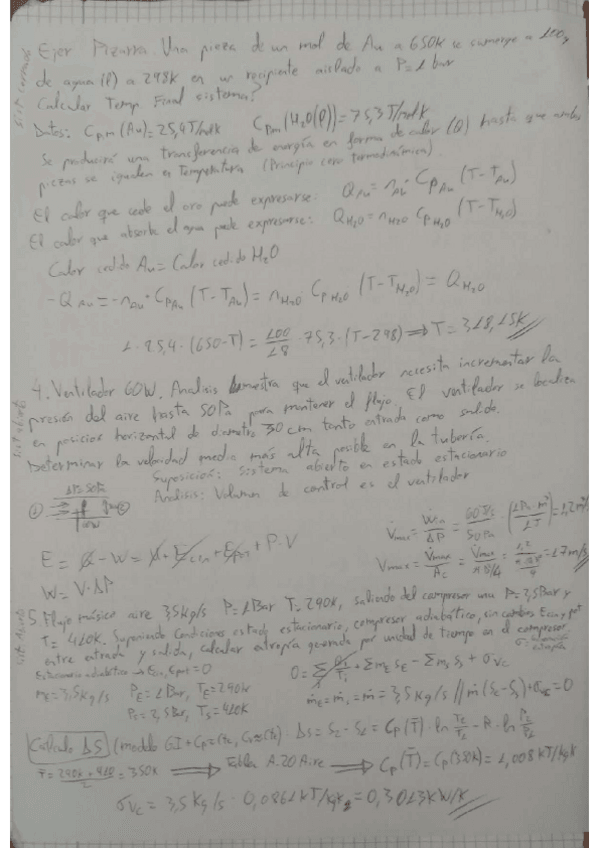 Sist cerrado
Ejer Pizarra. Una pieza de un mol de Au a 650K se sumerge a 100g
de agua (l) a 298K en un recipiente aislado a P=1 bar
Calcular Temp Final sistema?
Datos: Cp,m (Au)=25,4 J/molK Cp,m (H2O(l))=75,3 J/molK
Se producirá una transferencia de energía en forma de calor (Q) hasta que ambas
piezas se igualen en Temperatura (Principio cero termodinámica)
El calor que cede el oro puede expresarse: QAu = nAu · CpAu (T-TAu)
El calor que absorbe el agua puede expresarse: QH2O = nH2O CpH2O (T-TH2O)
Calor cedido Au = Calor cedido H2O
-QAu = -nAu · CpAu (T-TAu) = nH2O CpH2O (T-TH2O) = QH2O
1 · 25,4 · (650-T) = 100/18 · 75,3 · (T-298) ⟹ T = 318,15K
Sist abierto
4. Ventilador 60W. Analisis muestra que el ventilador necesita incrementar la
presión del aire hasta 50Pa para mantener el flujo. El ventilador se localiza
en posición horizontal de diametro 30cm tanto entrada como salida.
Determinar la velocidad media más alta posible en la tubería.
Suposición: Sistema abierto en estado estacionario
Analisis: Volumen de control es el ventilador
ΔP=50Pa
60W
V̇max = Ẇin/ΔP = 60 J/s / 50Pa · (1Pa·m³/1J) = 1,2m³/s
E = Q - W = Δ + Ecin + Epot + P·V
W = V·ΔP
Vmax = V̇max/A2 = V̇max/(πD²/4) = 17m/s
Sist Abierto
5. Flujo másico aire 3,5kg/s P=1Bar T=290K, saliendo del compresor una P=3,5Bar y
T=410K. Suponiendo condiciones estado estacionario, compresor adiabático, sin cambios Ecin y pot
entre entrada y salida, calcular entropía generada por unidad de tiempo en el compresor
Estacionario adiabático → Ecin, Epot = 0
0 = Σ Qi/Ti + Σ me SE - Σ ms Ss + σVC
mE = 3,5kg/s PE = 1Bar, TE = 290K
ṁE = ṁs = ṁ = 3,5kg/s // ṁ(SE-Ss)+σVC = 0
Ps = 3,5Bar, Ts = 410K
Calculo ΔS ΔS = S2-S1 = Cp(T̄) · ln T2/T1 - R · ln P2/P1
T̄ = 290K + 410/2 = 350K ⟹ Tabla A.20 Aire ⟶ Cp(T̄) = Cp(350K) = 1,008 kJ/kgK
σVC = 3,5kg/s · 0,0861 kJ/kgK = 0,3013kW/K